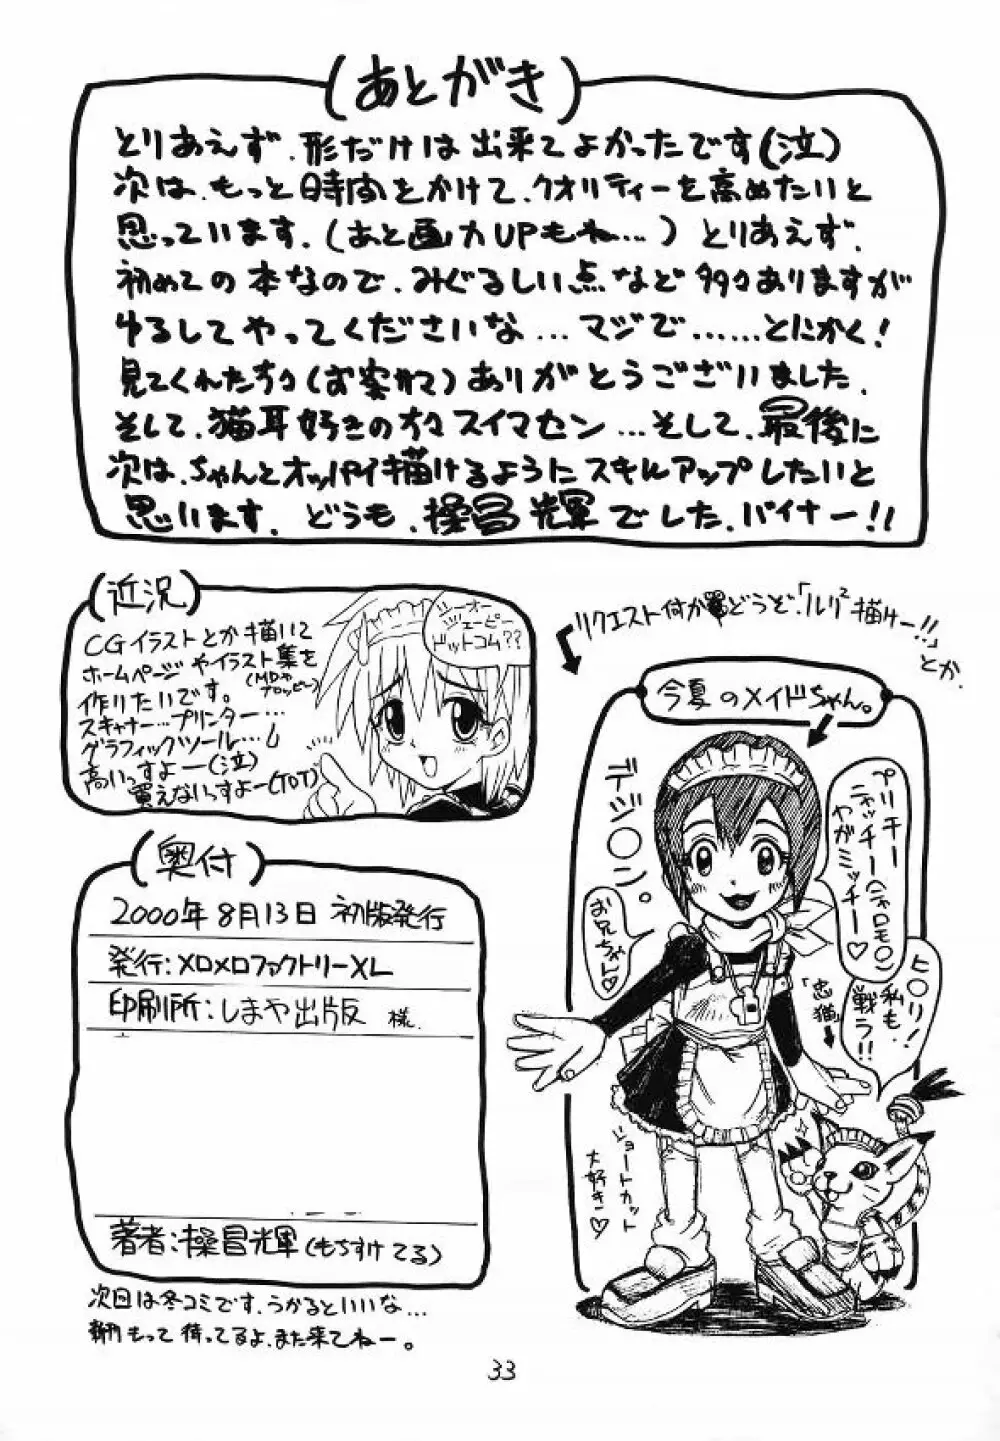 (あとがき)
とりあえず、形だけは出来てよかったです(泣)
次は、もっと時間をかけて、クオリティーを高めたいと
思っています。(あと画力UPもね…)とりあえず、
初めての本なので、みぐるしい点など多々ありますが
ゆるしてやってくださいな…マジで……とにかく!
見てくれた方々(お客サマ)ありがとうございました。
そして、猫耳好きの方々スイマセン…そして、最後に
次は、ちゃんとオッパイ描けるようにスキルアップしたいと
思います。どうも、操冒輝でした、バイナー!!
(近況)
CGイラストとか描いて
ホームページやイラスト集を
(MDや
フロッピー)
作りたいです。
スキャナー…プリンター…
グラフィックツール…
高いっすよー(泣)
買えないっすよー(ToT)
シーオー
ジェーピー
ドットコム??
リクエスト何かどうぞ。「ルリ²描けー!!」
とか。
今夏のメイドちゃん。
デジ○ン。
お兄ちゃん♡
プリキー
ニャッチー(ニャロモ○ン)
やがミッチー♡
ヒ○リ!
私も
戦う!!
「忠猫」
ショートカット
大好き♡
(奥付)
2000年8月13日 初版発行
発行:メロメロファクトリーXL
印刷所:しまや出版 様
著者:操冒輝(もちすけてる)
次回は冬コミです。うかるといいな…
もって待ってるよ、また来てねー。
33